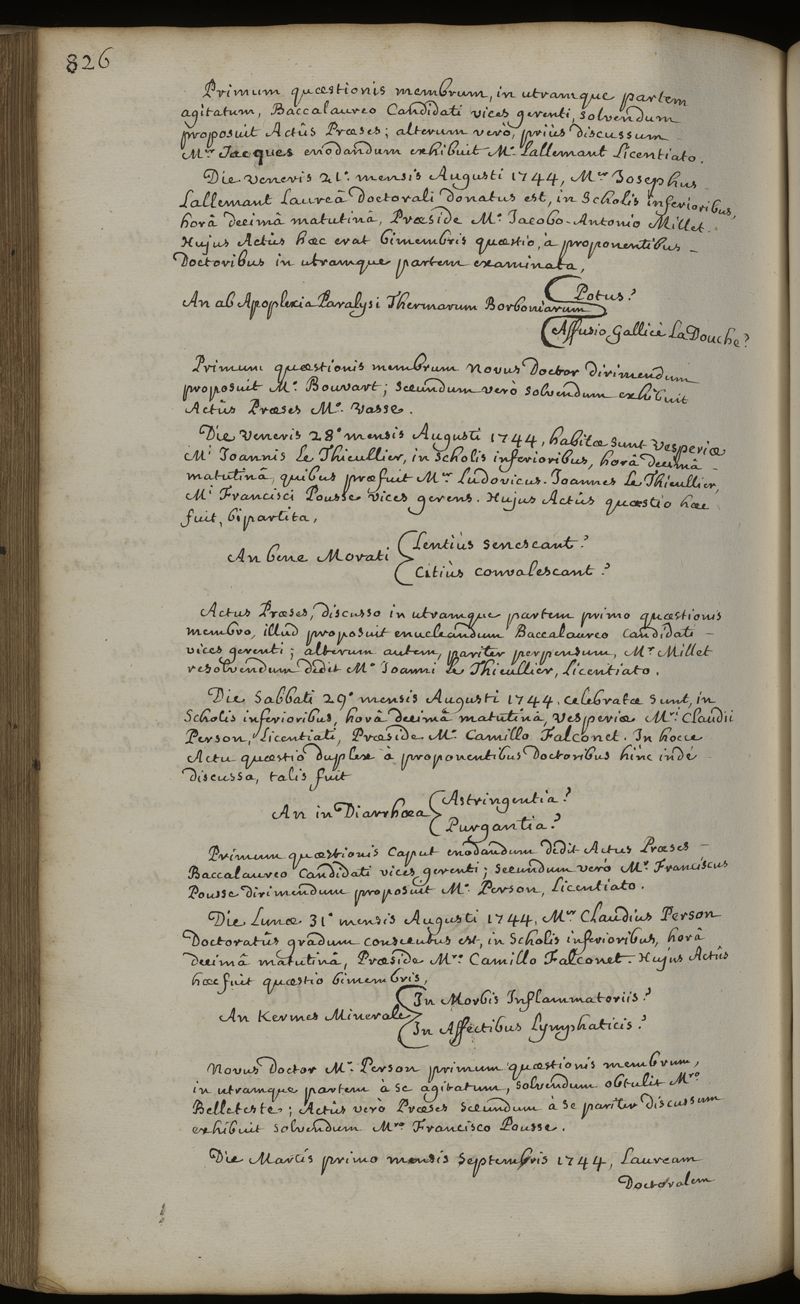 826
Primum quæstionis membrum, in utramque partem
agitatum, Baccalaureo Candidati vices gerenti, solvendum
proposuit Actûs Præses; alterum verò, priùs discussum
Mer Jacques enodandum exhibuit Mo. Lallemant Licentiato.
Die veneris 21a. mensis Augusti 1744, Mer Josephus
Lallemant Laureâ Doctorali donatus est, in Scholis inferioribus,
horâ decimâ matutinâ, Præside Mo. Jacobo-Antonio Millet.
Hujus Actûs hæc erat bimembris quæstio, à proponentibus
Doctoribus in utramque partem examinata,
Potus?
An ab Apoplexia Paralysi Thermarum Borboniarum
Affusio, Gallicè La Douche?
Primum quæstionis membrum novus Doctor dirimendum
proposuit Mo. Bouvart; secundum verò solvendum exhibuit
Actûs Præses Mo. Vasse.
Die Veneris 28a mensis Augusti 1744, habitæ sunt Vesperiæ
Mi Joannis Le Thieullier, in Scholis inferioribus, horâ decimâ
matutinâ, quibus præfuit Mer Ludovicus-Joannes Le Thieullier,
Mi Francisci Pousse vices gerens. Hujus Actûs quæstio hæc
fuit, bipartita,
Lentiùs senescant?
An bene Morati
Citiùs convalescant?
Actus Præses, discusso in utramque partem primo quæstionis
membro, illud proposuit enucleandum Baccalaureo Candidati
vices gerenti; alterum autem, pariter perpensum, Mr Millet
resolvendum dedit Mo Joanni Le Thieullier, Licentiato.
Die Sabbati 29a mensis Augusti 1744, celebratæ sunt, in
Scholis inferioribus, horâ decimâ matutinâ, Vesperiæ Mri Claudii
Person, Licentiati, Præside Mo. Camillo Falconet. In hocce
Actu quæstio duplex à proponentibus Doctoribus hinc indè
discussa, talis fuit
Astringentia?
An in Diarrhœa
Purgantia?
Primum quæstionis caput enodandum dedit Actus Præses
Baccalaureo Candidati vices gerenti; secundum verò Mr Franciscus
Pousse dirimendum proposuit Mo. Person, Licentiato.
Die Lunæ 31a mensis Augusti 1744, Mer Claudius Person
Doctoratûs gradum consecutus est, in Scholis inferioribus, horâ
decimâ matutinâ, Præside Mro Camillo Falconet. Hujus Actûs
hæc fuit quæstio bimembris,
In Morbis Inflammatoriis?
An Kermes Minerale
In Affectibus Lymphaticis?
Novus Doctor Mr. Person primum quæstionis membrum,
in utramque partem à se agitatum, solvendum obtulit Mro
Belleteste; Actûs verò Præses secundum à se pariter discussum
exhibuit solvendum Mro Francisco Pousse.
Die Martis primo mensis Septembris 1744, Lauream
Doctoralem